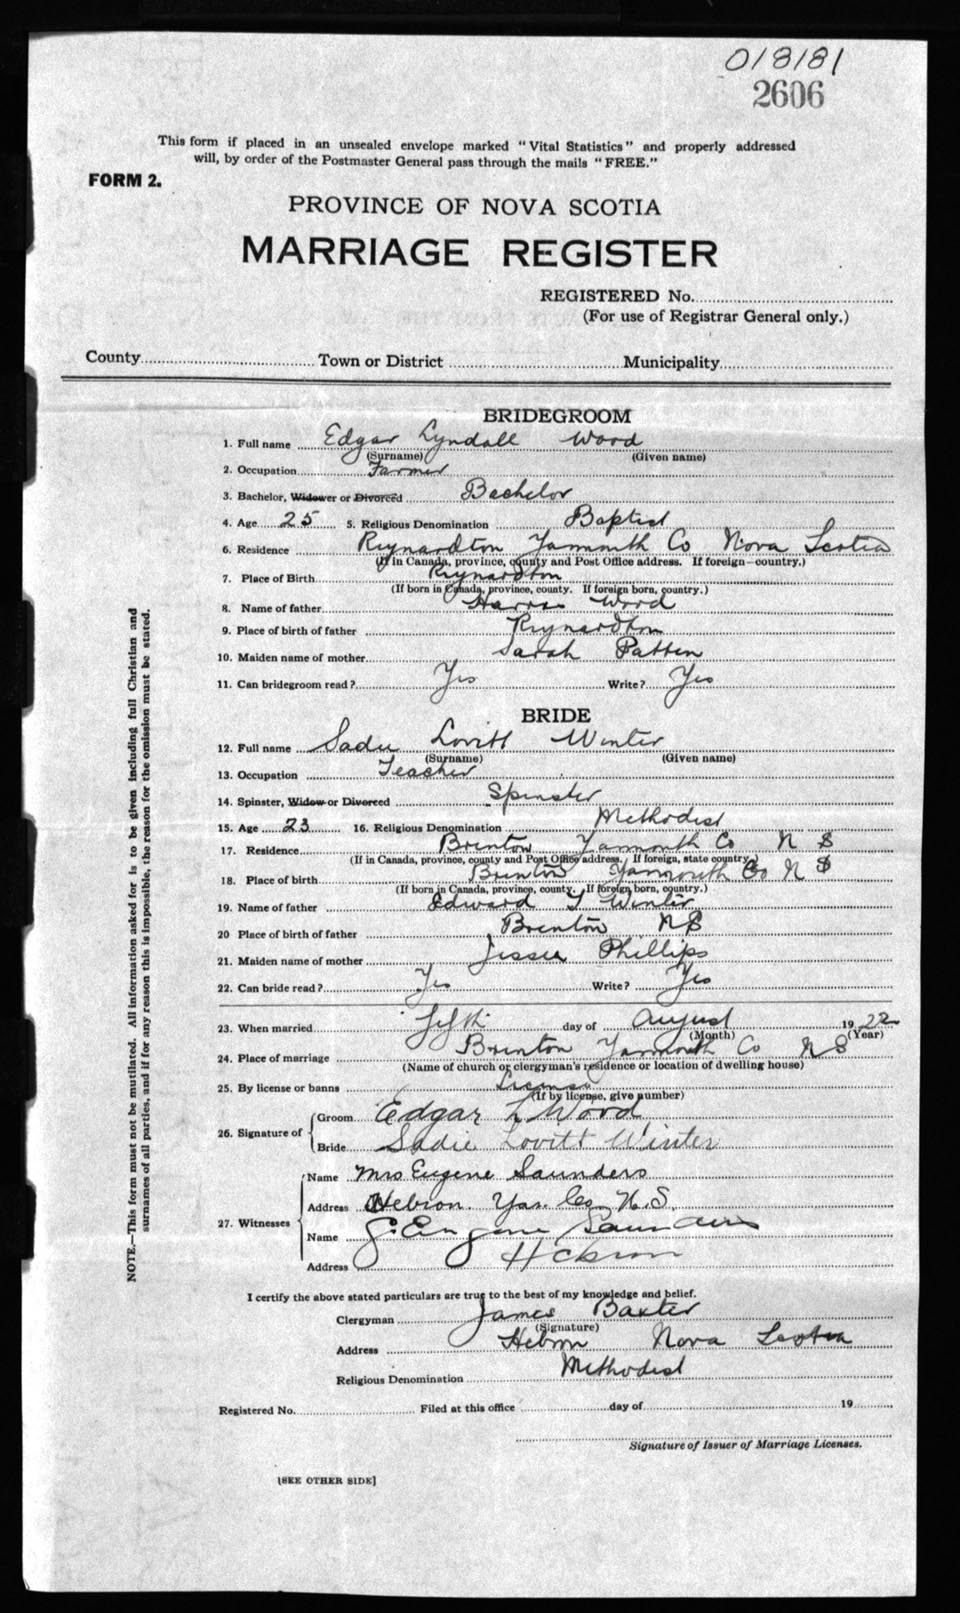 018181
2606
This form if placed in an unsealed envelope marked "Vital Statistics" and properly addressed
will, by order of the Postmaster General pass through the mails "FREE."
FORM 2.
PROVINCE OF NOVA SCOTIA
MARRIAGE REGISTER
REGISTERED No.
(For use of Registrar General only.)
County Town or District Municipality
BRIDEGROOM
1. Full name Edgar Lyndall Wood
(Surname) (Given name)
2. Occupation Farmer
3. Bachelor, Widower or Divorced Bachelor
4. Age 25 5. Religious Denomination Baptist
6. Residence Reynardton Yarmouth Co Nova Scotia
(If in Canada, province, county and Post Office address. If foreign—country.)
7. Place of Birth Reynardton
(If born in Canada, province, county. If foreign born, country.)
8. Name of father Wood
9. Place of birth of father Reynardton
10. Maiden name of mother Sarah Patten
11. Can bridegroom read? Yes Write? Yes
BRIDE
12. Full name Sadie Lovitt Winter
(Surname) (Given name)
13. Occupation Teacher
14. Spinster, Widow or Divorced Spinster
15. Age 23 16. Religious Denomination Methodist
17. Residence Brenton Yarmouth Co N S
(If in Canada, province, county and Post Office address. If foreign, state country.)
18. Place of birth Brenton Yarmouth Co N S
(If born in Canada, province, county. If foreign born, country.)
19. Name of father Edward Winter
20 Place of birth of father Brenton NS
21. Maiden name of mother Jessie Phillips
22. Can bride read? Yes Write? Yes
23. When married fifth day of August 1922
(Month) (Year)
24. Place of marriage Brenton Yarmouth Co N S
(Name of church or clergyman's residence or location of dwelling house)
25. By license or banns License
(If by license, give number)
26. Signature of Groom Edgar L Wood
Bride Sadie Lovitt Winter
27. Witnesses Name Mrs Eugene Saunders
Address Hebron. Yar. Co. N. S.
Name Eugene Saunders
Address Hebron
I certify the above stated particulars are true to the best of my knowledge and belief.
Clergyman James Baxter
(Signature)
Address Hebron Nova Scotia
Religious Denomination Methodist
Registered No. Filed at this office day of 19
Signature of Issuer of Marriage Licenses.
[SEE OTHER SIDE]
NOTE.—This form must not be mutilated. All information asked for is to be given including full Christian and
surnames of all parties, and if for any reason this is impossible, the reason for the omission must be stated.